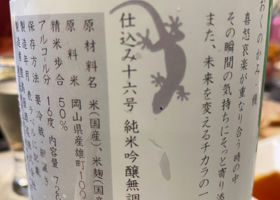 おくのかみ
喜怒哀楽が重なり合う時の中
その瞬間の気持ちにそっと寄り添
また、未来を変えるチカラの一
仕込み十六号 純米吟醸無調
原材料名 米(国産)、米麹(国産
原料米 岡山県産雄町100%
精米歩合 50%
アルコール分 16度 内容量 72
保存方法 要冷蔵
製造年月